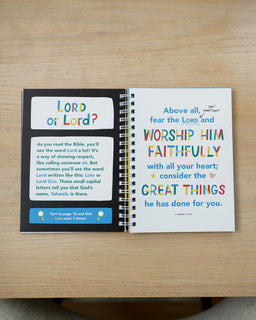 LORD
or Lord?
As you read the Bible, you'll
see the word Lord a lot! It's
a way of showing respect,
like calling someone sir. But
sometimes you'll see the word
Lord written like this: LORD or
Lord GOD. Those small capital
letters tell you that God's
name, Yahweh, is there.
Turn to page 10 and find
LORD used 3 times!
Above all,
fear the LORD and
WORSHIP HIM
FAITHFULLY
with all your heart;
consider the
GREAT THINGS
he has done for you.